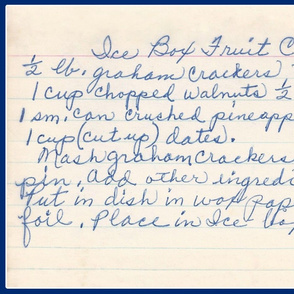 Ice Box Fruit C
½ lb. graham crackers
1 cup chopped walnuts ½
1 sm. can cruched pineapp
1 cup (cut up) dates.
Mash graham crackers
pin. Add other ingredi
Put in dish in wax pap
foil. Place in Ice